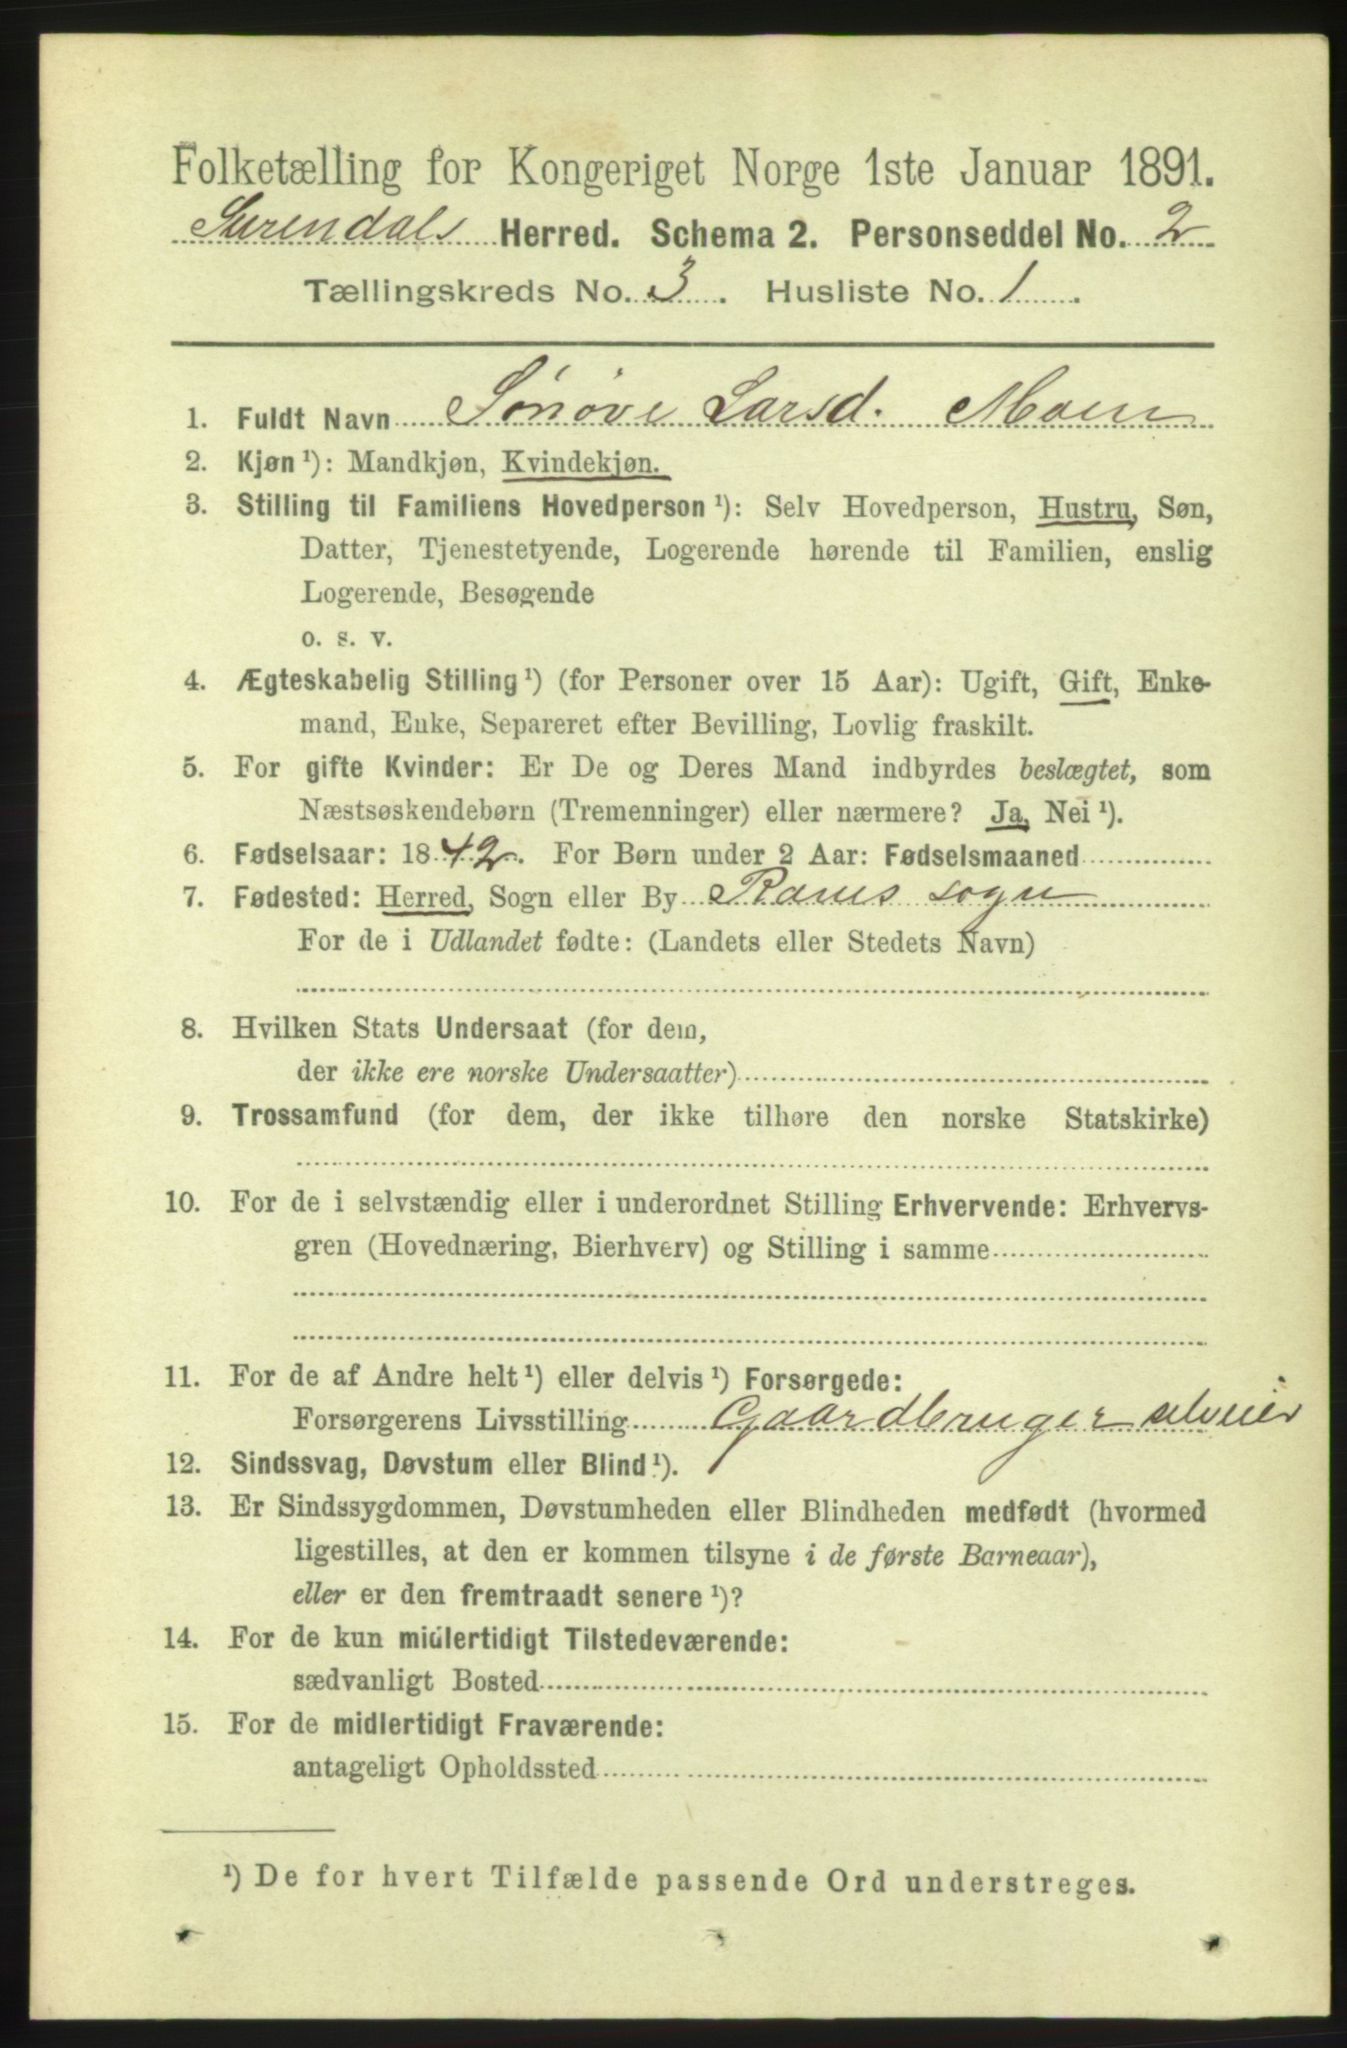 Folketælling for Kongeriget Norge 1ste Januar 1891.
Surendals Herred. Schema 2. Personseddel No. 2
Tællingskreds No. 3. Husliste No. 1.
1. Fuldt Navn Sønøve Larsd. Moen
2. Kjøn ¹): Mandkjøn, Kvindekjøn.
3. Stilling til Familiens Hovedperson ¹): Selv Hovedperson, Hustru, Søn,
Datter, Tjenestetyende, Logerende hørende til Familien, enslig
Logerende, Besøgende
o. s. v.
4. Ægteskabelig Stilling ¹) (for Personer over 15 Aar): Ugift, Gift, Enke-
mand, Enke, Separeret efter Bevilling, Lovlig fraskilt.
5. For gifte Kvinder: Er De og Deres Mand indbyrdes beslægtet, som
Næstsøskendebørn (Tremenninger) eller nærmere? Ja, Nei ¹).
6. Fødselsaar: 1842. For Børn under 2 Aar: Fødselsmaaned
7. Fødested: Herred, Sogn eller By Ranes sogn
For de i Udlandet fødte: (Landets eller Stedets Navn)
8. Hvilken Stats Undersaat (for dem,
der ikke ere norske Undersaatter)
9. Trossamfund (for dem, der ikke tilhøre den norske Statskirke)
10. For de i selvstændig eller i underordnet Stilling Erhvervende: Erhvervs-
gren (Hovednæring, Bierhverv) og Stilling i samme
11. For de af Andre helt ¹) eller delvis ¹) Forsørgede:
Forsørgerens Livsstilling Gaardbruger selveier
12. Sindssvag, Døvstum eller Blind ¹).
13. Er Sindssygdommen, Døvstumheden eller Blindheden medfødt (hvormed
ligestilles, at den er kommen tilsyne i de første Barneaar),
eller er den fremtraadt senere ¹)?
14. For de kun midlertidigt Tilstedeværende:
sædvanligt Bosted
15. For de midlertidigt Fraværende:
antageligt Opholdssted
¹) De for hvert Tilfælde passende Ord understreges.